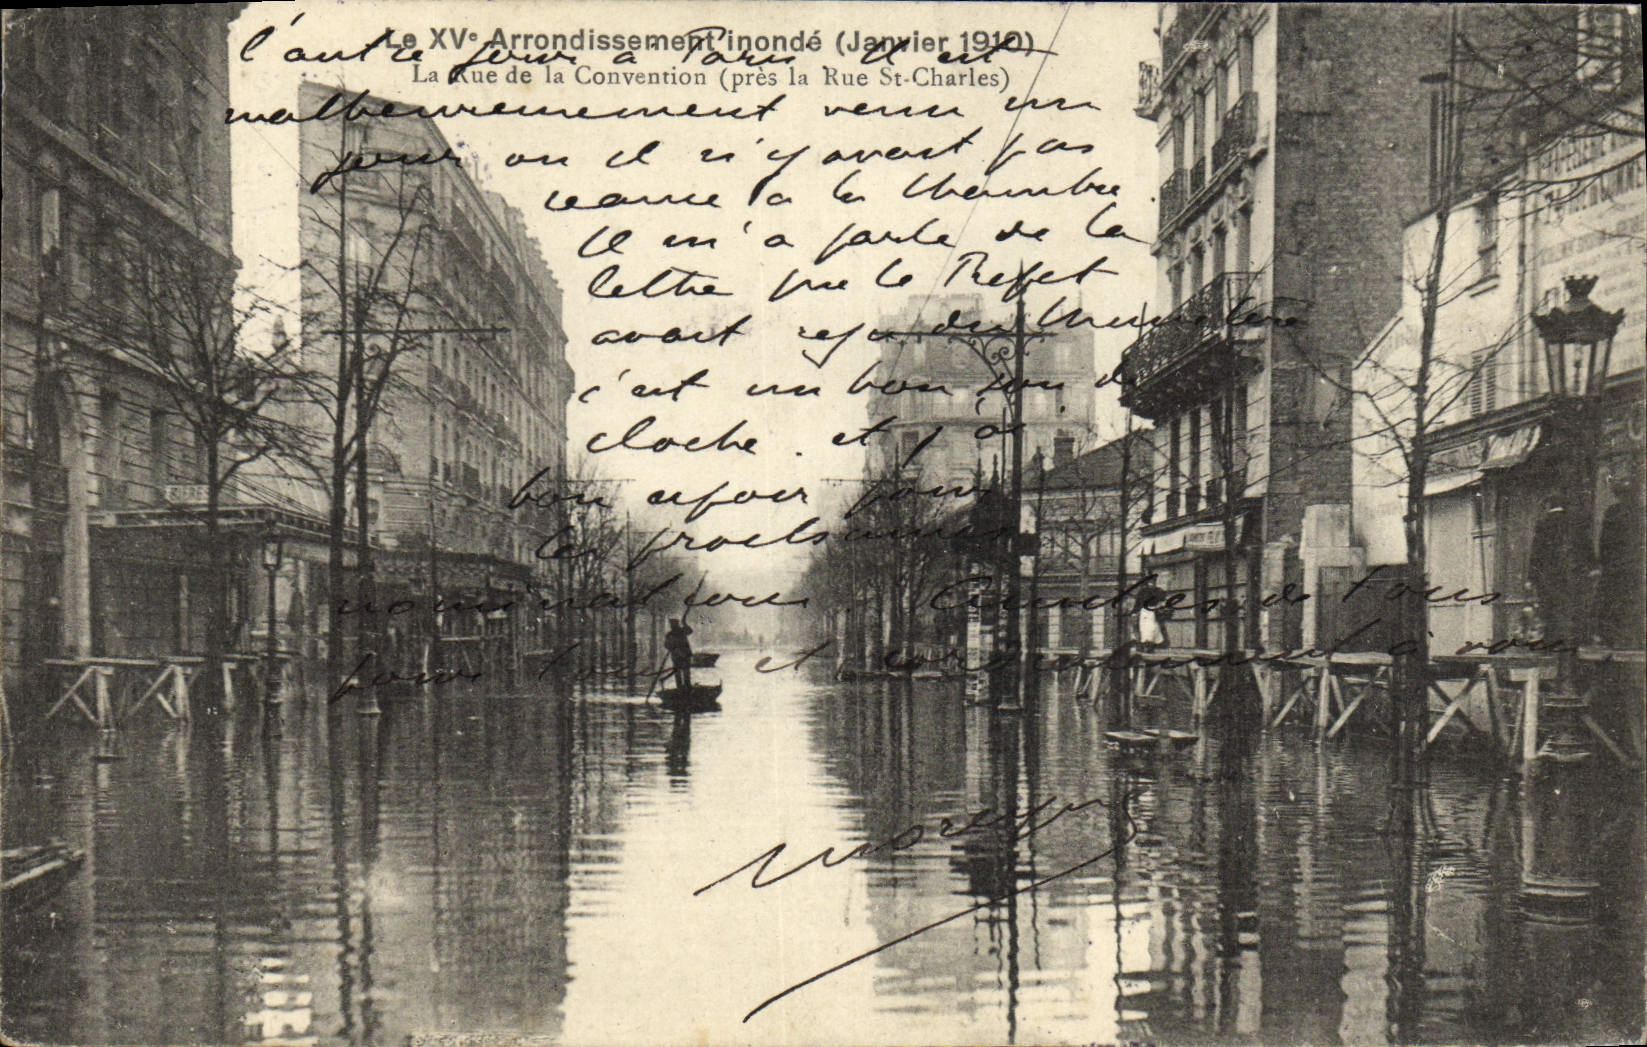 Le XVe Arrondissement inondé (Janvier 1910)
La Rue de la Convention (près la Rue St-Charles)
l'autre jour à Paris Il est
malheureusement venu un
jour ou il n'y avait pas
seance a la Chambre.
Il m'a parlé de la
lettre que le Prefet
avait reçu du Ministère
c'est un bon son de
cloche. et j'ai
bon espoir pour
les prochaines
nominations. Amitiés de tous
pour tous et cordialement à vous